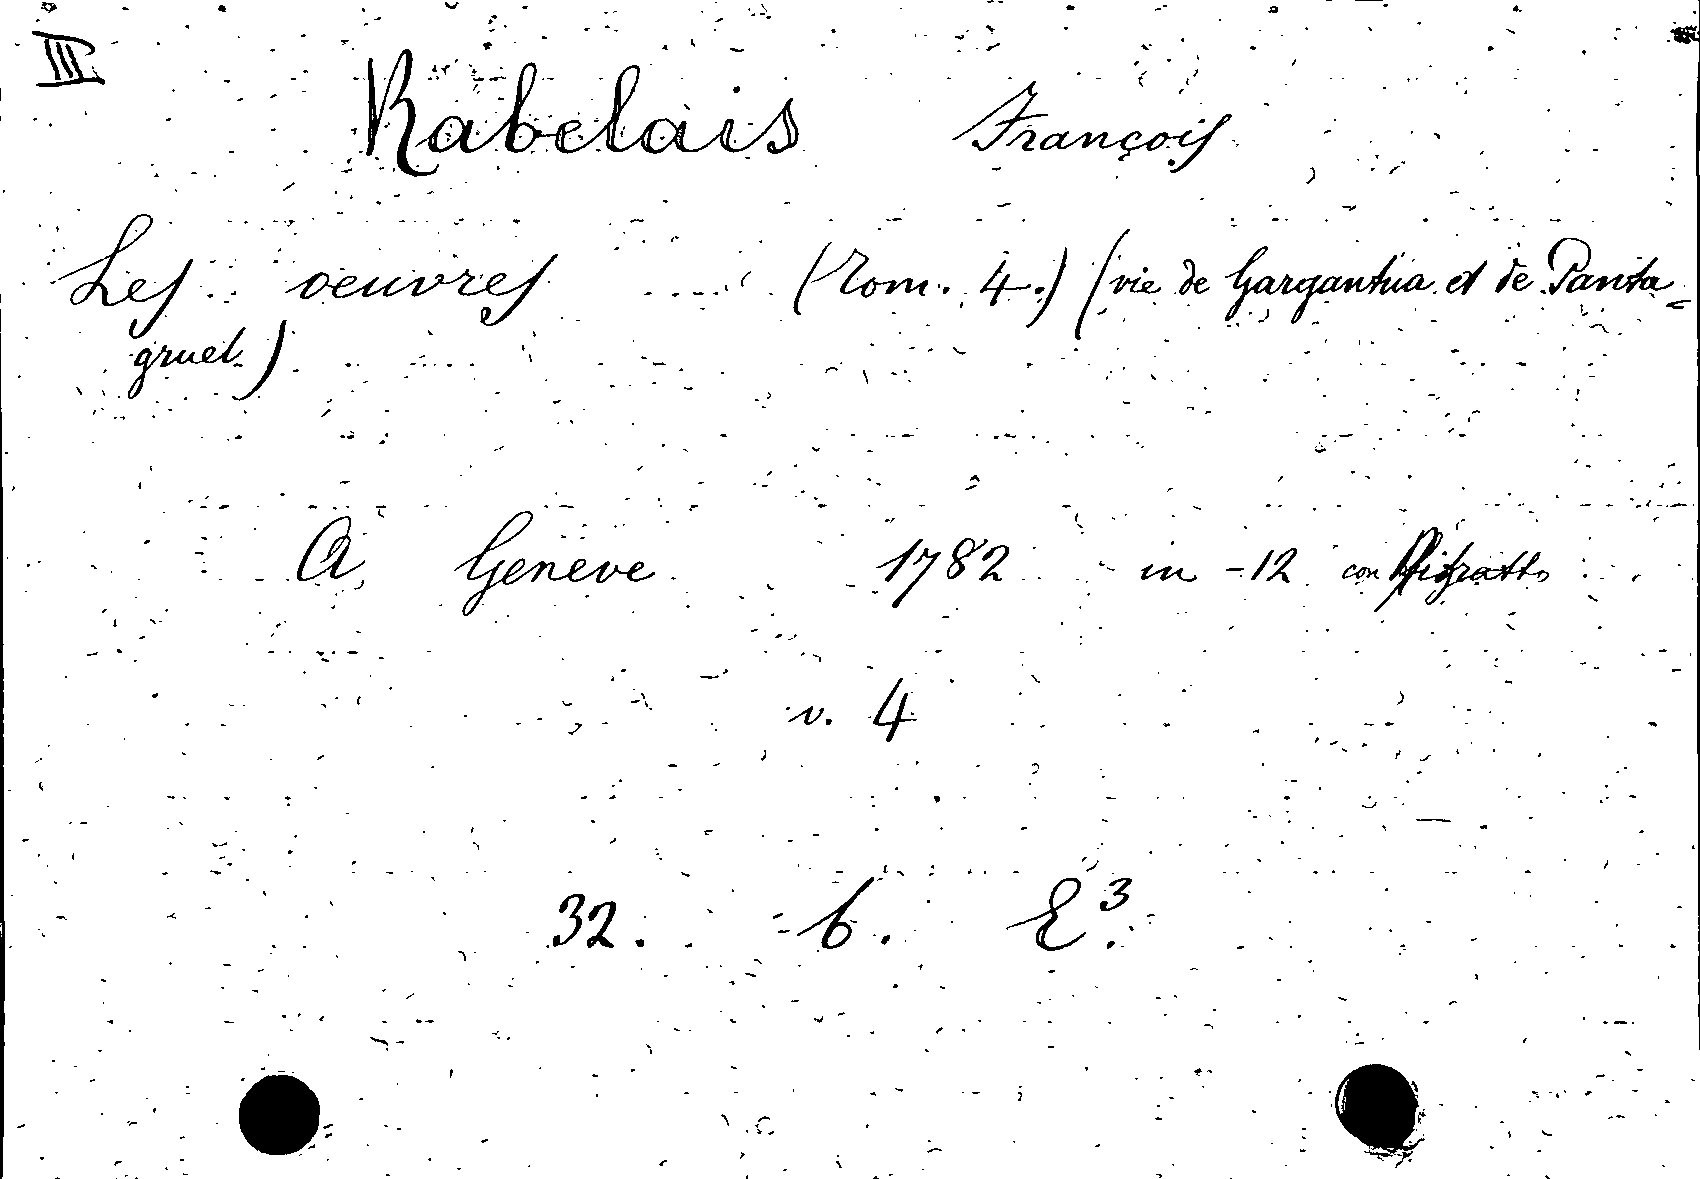 III
Rabelais François
Les oeuvres (Tom. 4.) (vie de Gargantua et de Panta=
gruel.)
A Geneve 1782 in -12 con Ritratto
v. 4
32. b. E³.